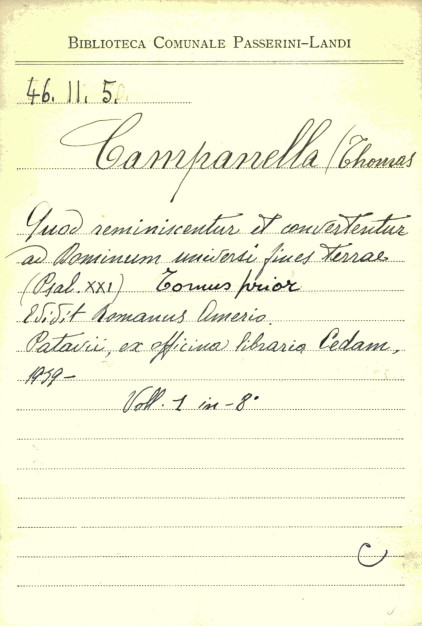 BIBLIOTECA COMUNALE PASSERINI-LANDI
46. II. 5.
Campanella (Thomas
Quod reminiscentur et convertentur
ad Dominum universi fines terrae
(Psal. XXI) Tomus prior
Edidit Romanus Amerio.
Patavii, ex officina libraria Cedam,
1939-
Voll. 1 in-8°
C